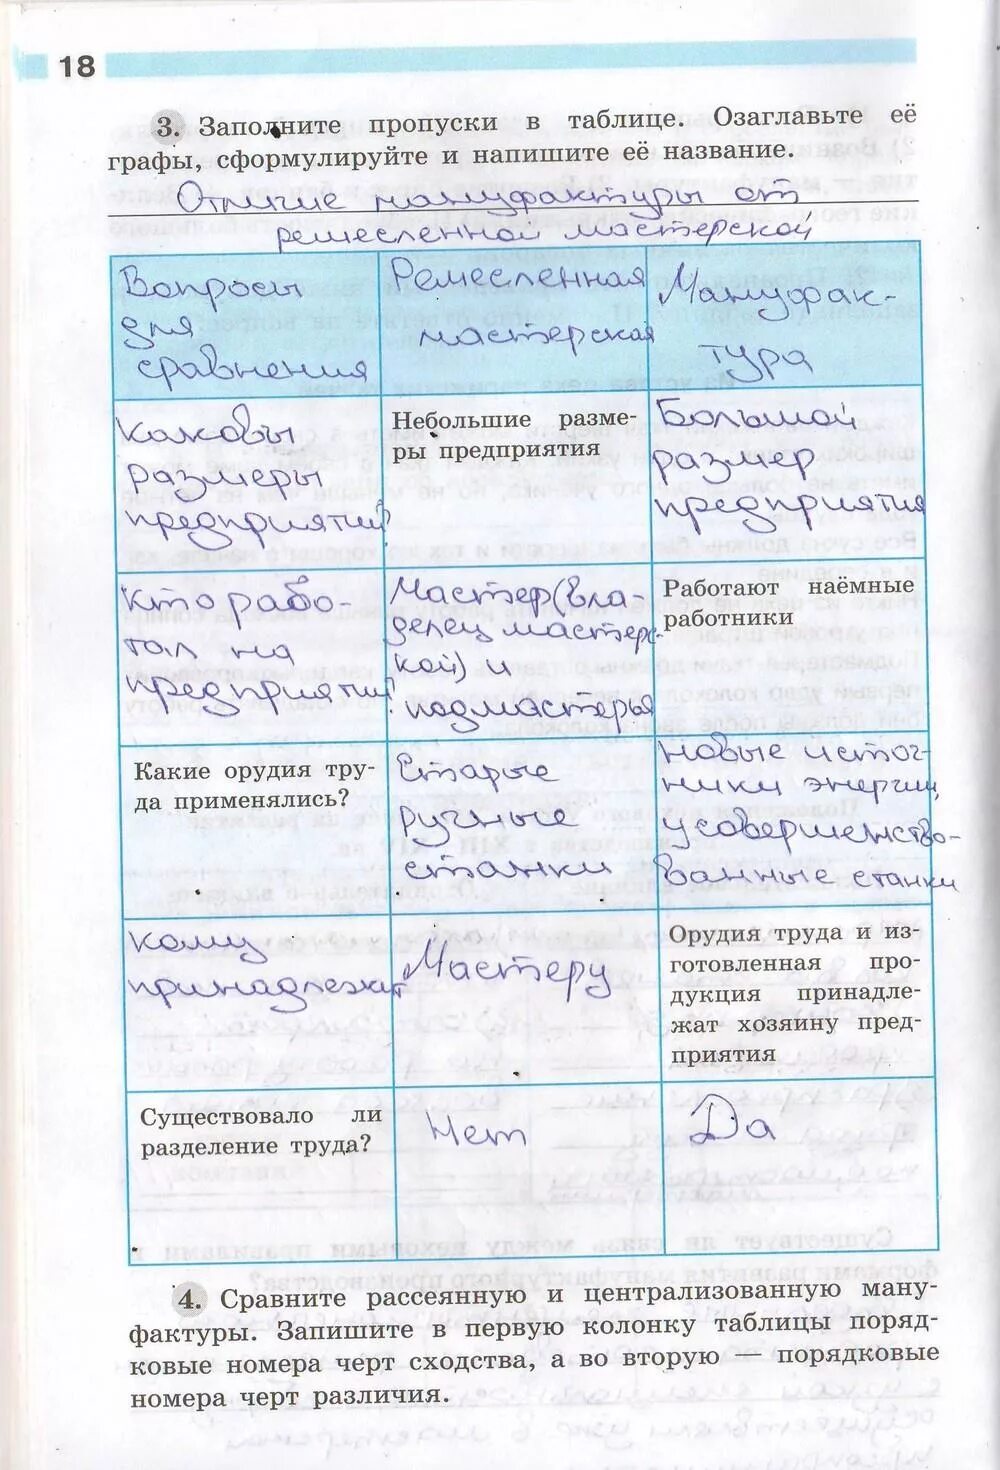 18
3. Заполните пропуски в таблице. Озаглавьте её
графы, сформулируйте и напишите её название.
Отличие мануфактуры от
ремесленной мастерской
Вопросы
для
сравнения
Ремесленная
мастерская
Мануфак-
тура
Каковы
размеры
предприятий?
Небольшие разме-
ры предприятия
Большой
размер
предприятия
Кто рабо-
тал на
предприятии?
Мастер (вла-
делец мастерс-
кой) и
подмастерья
Работают наёмные
работники
Какие орудия тру-
да применялись?
Старые
ручные
станки
Новые источ-
ники энергии,
усовершенство-
ванные станки
Кому
принадлежат
Мастеру
Орудия труда и из-
готовленная про-
дукция принадле-
жат хозяину пред-
приятия
Существовало ли
разделение труда?
Нет
Да
4. Сравните рассеянную и централизованную ману-
фактуры. Запишите в первую колонку таблицы поряд-
ковые номера черт сходства, а во вторую — порядковые
номера черт различия.